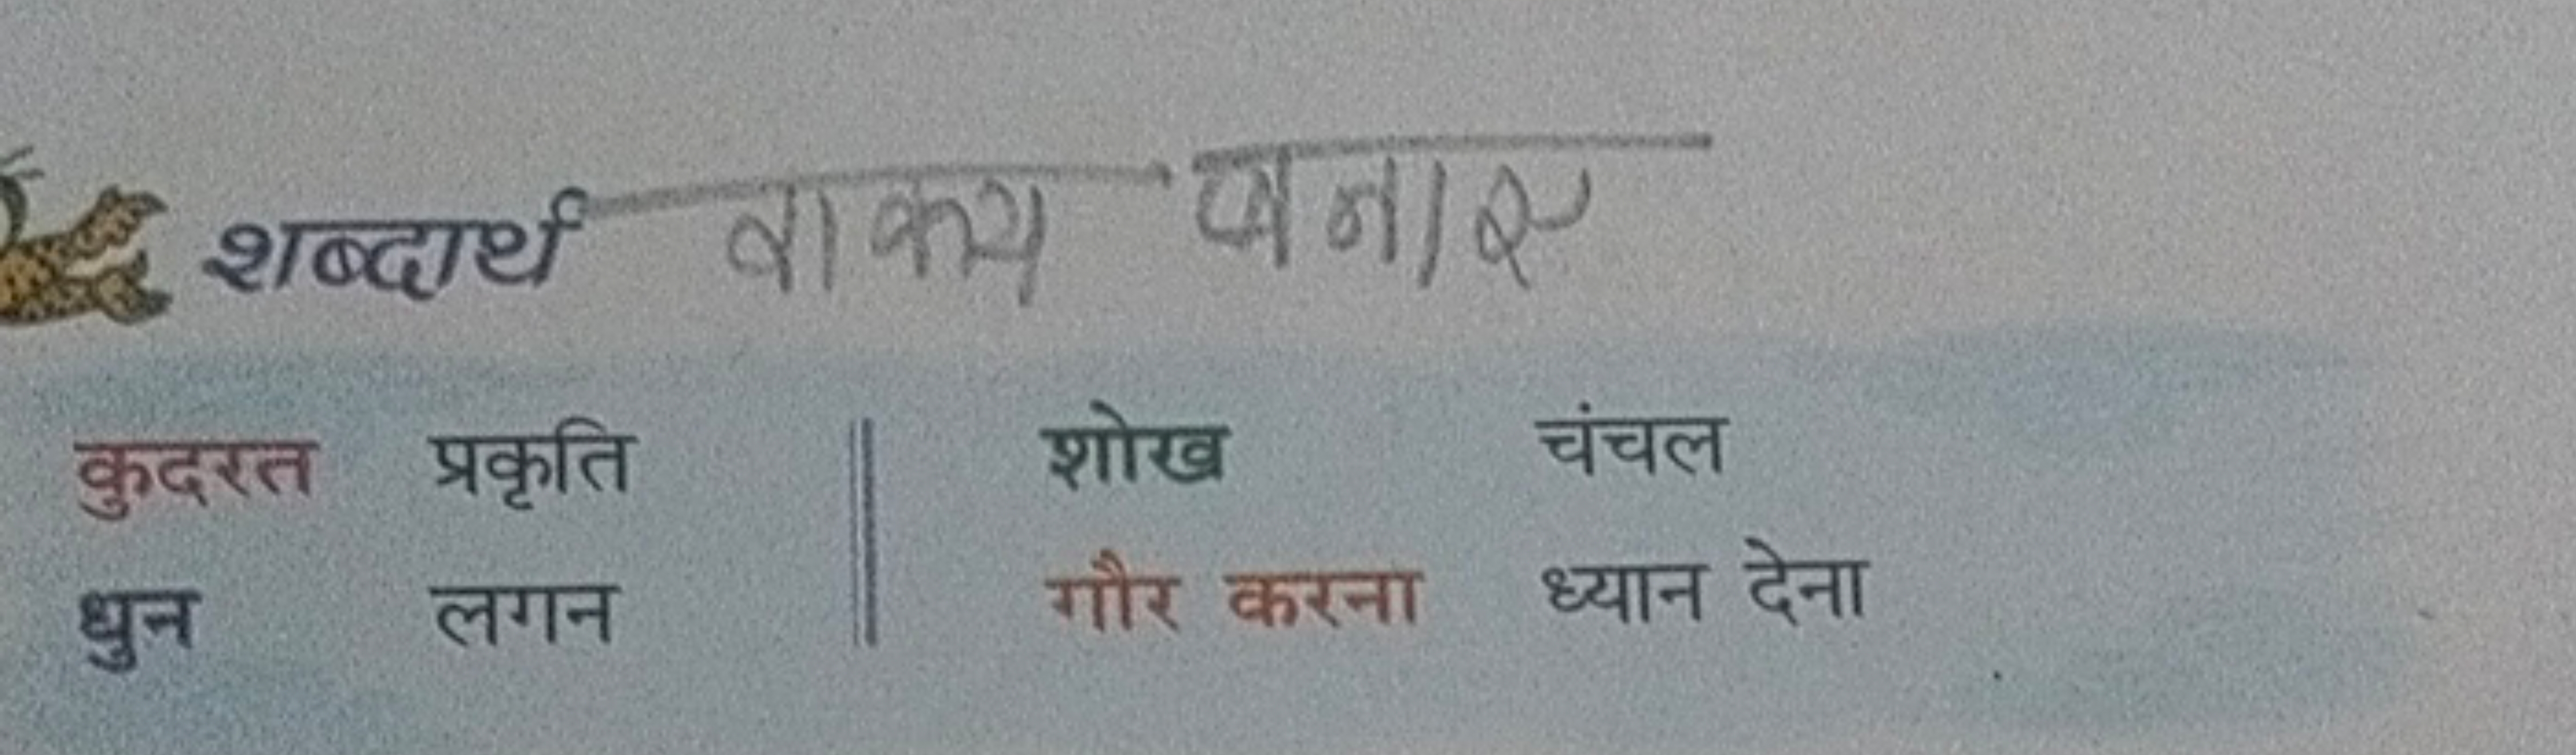 शब्दार्थ वाक्य बनाए
कुदरत प्रकृति शोख चंचल
धुन लगन गौर करना ध्यान देना